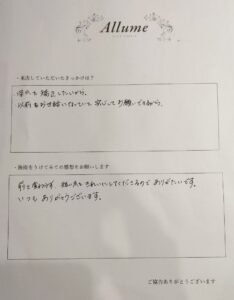 Allume
・来店していただいたきっかけは？
深爪を矯正したいから。
以前もお世話になっていて、安心してお願いできるから。
・施術をうけてみての感想をお願いします
前と変わらず、きれいにしてくださるので ありがたいです。
いつも ありがとうございます。
ご協力ありがとうございます